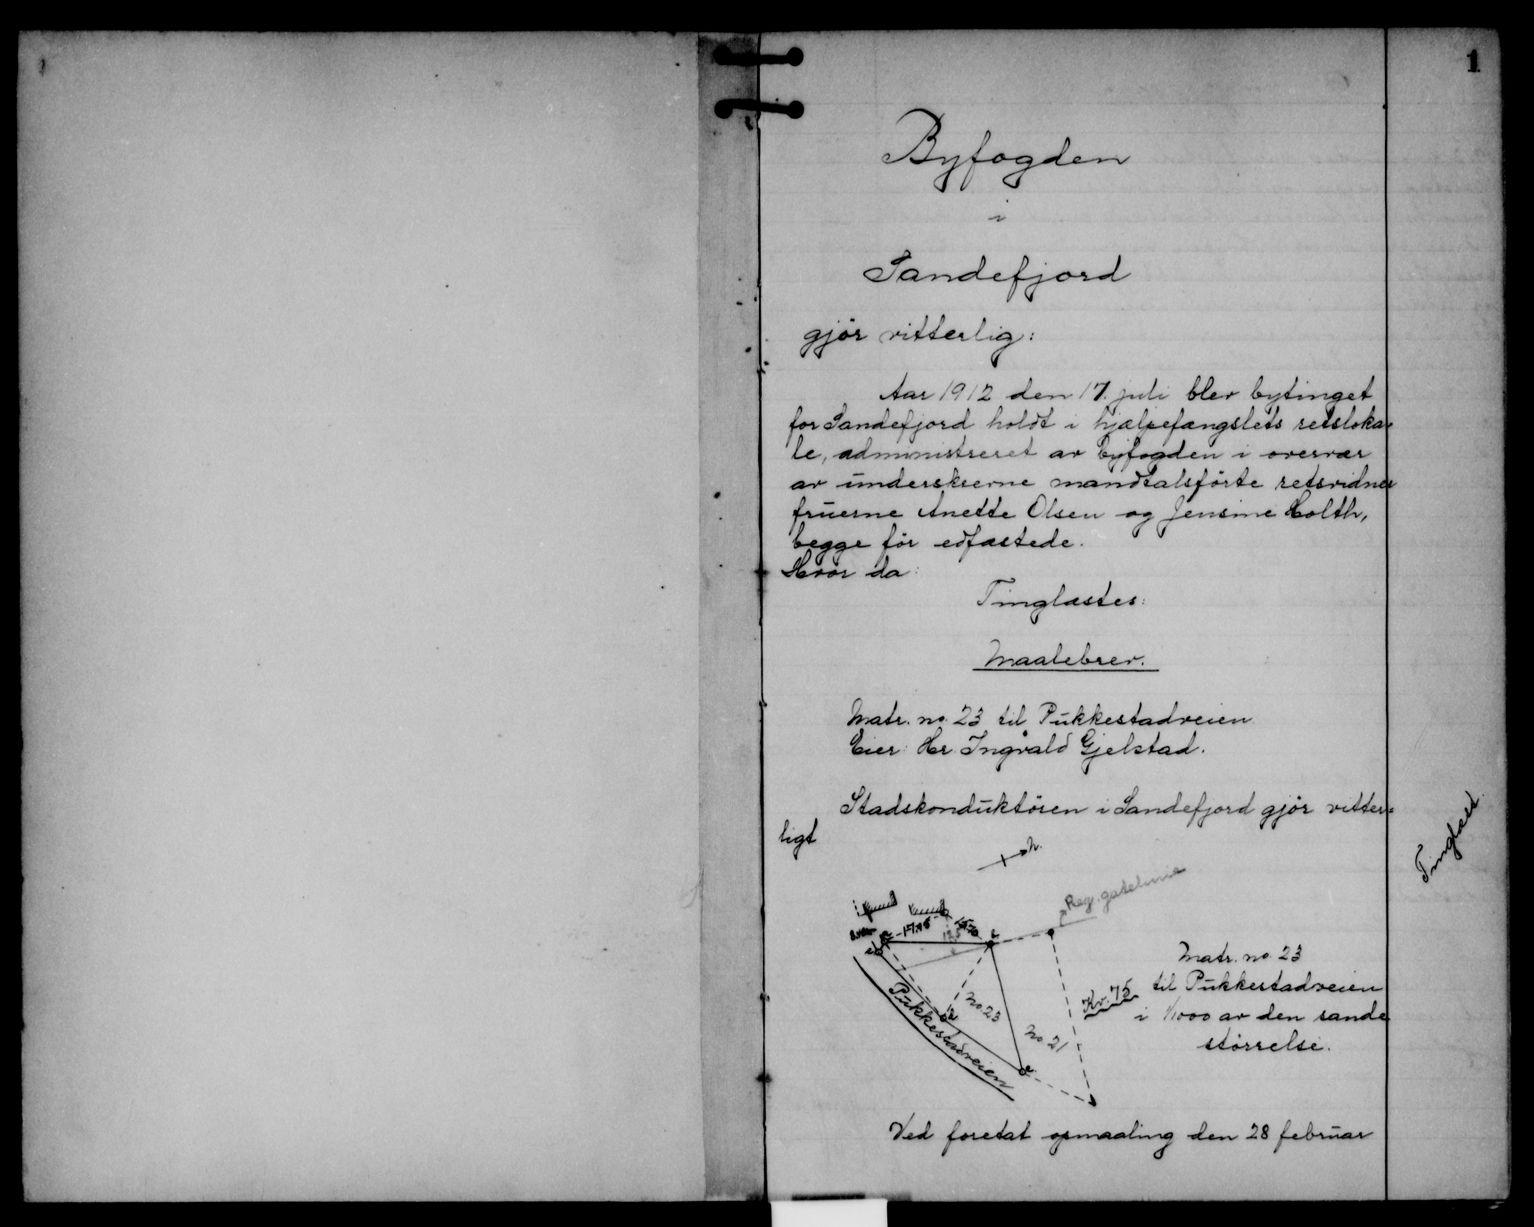 1
Byfogden
i
Sandefjord
gjör vitterlig:
Aar 1912 den 17. juli blev bytinget
for Sandefjord holdt i hjælpefængslets retsloka-
le, administreret av byfogden i overvær
av underskrevne mandtalsförte retsvidner
fruerne Anette Olsen og Jensine Holth,
begge för edfæstede.
Hvor da:
Tinglæstes:
Maalebrev.
Matr. no. 23 til Pukkestadveien
Eier: Hr. Ingvald Gjelstad.
Stadskonduktören i Sandefjord gjör vitter-
ligt
Tinglæst
N.
Reg. gatelinie
17.05
No 23
No 21
Kv. 75
Pukkestadveien
Matr. no 23
til Pukkestadveien
i 1/1000 av den sande
störrelse.
Ved foretat opmaaling den 28 februar